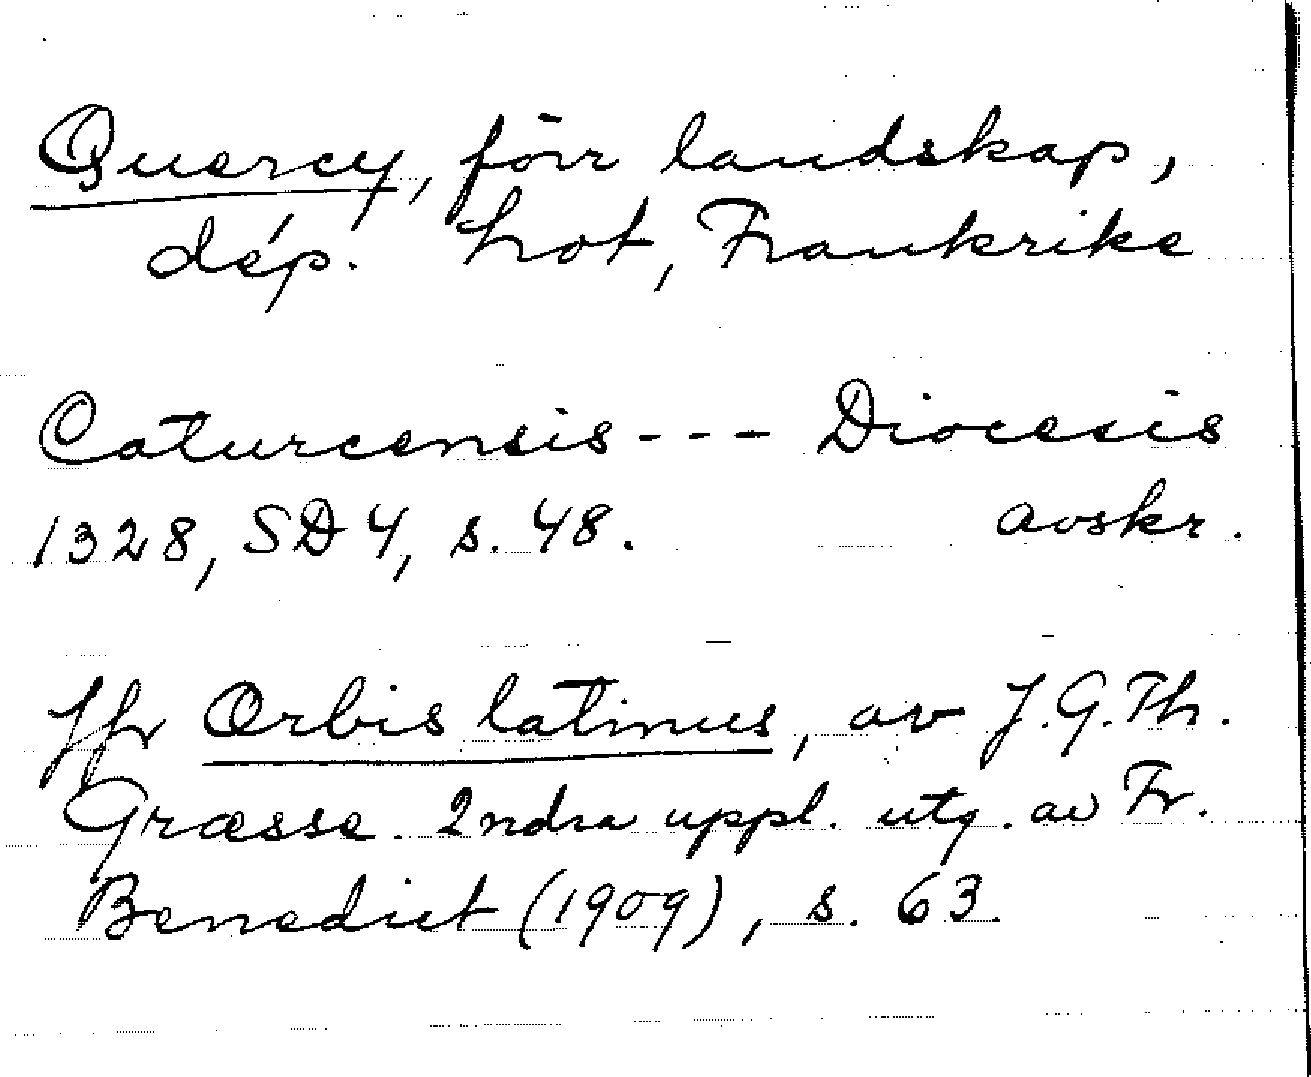 Quercy, förr landskap,
dép. Lot, Frankrike
Caturcensis --- Diocesis
1328, SD 4, s. 48. avskr.
Jfr Orbis latinus, av J.G.Th.
Græsse. 2ndra uppl. utg. av Fr.
Benedict (1909), s. 63.